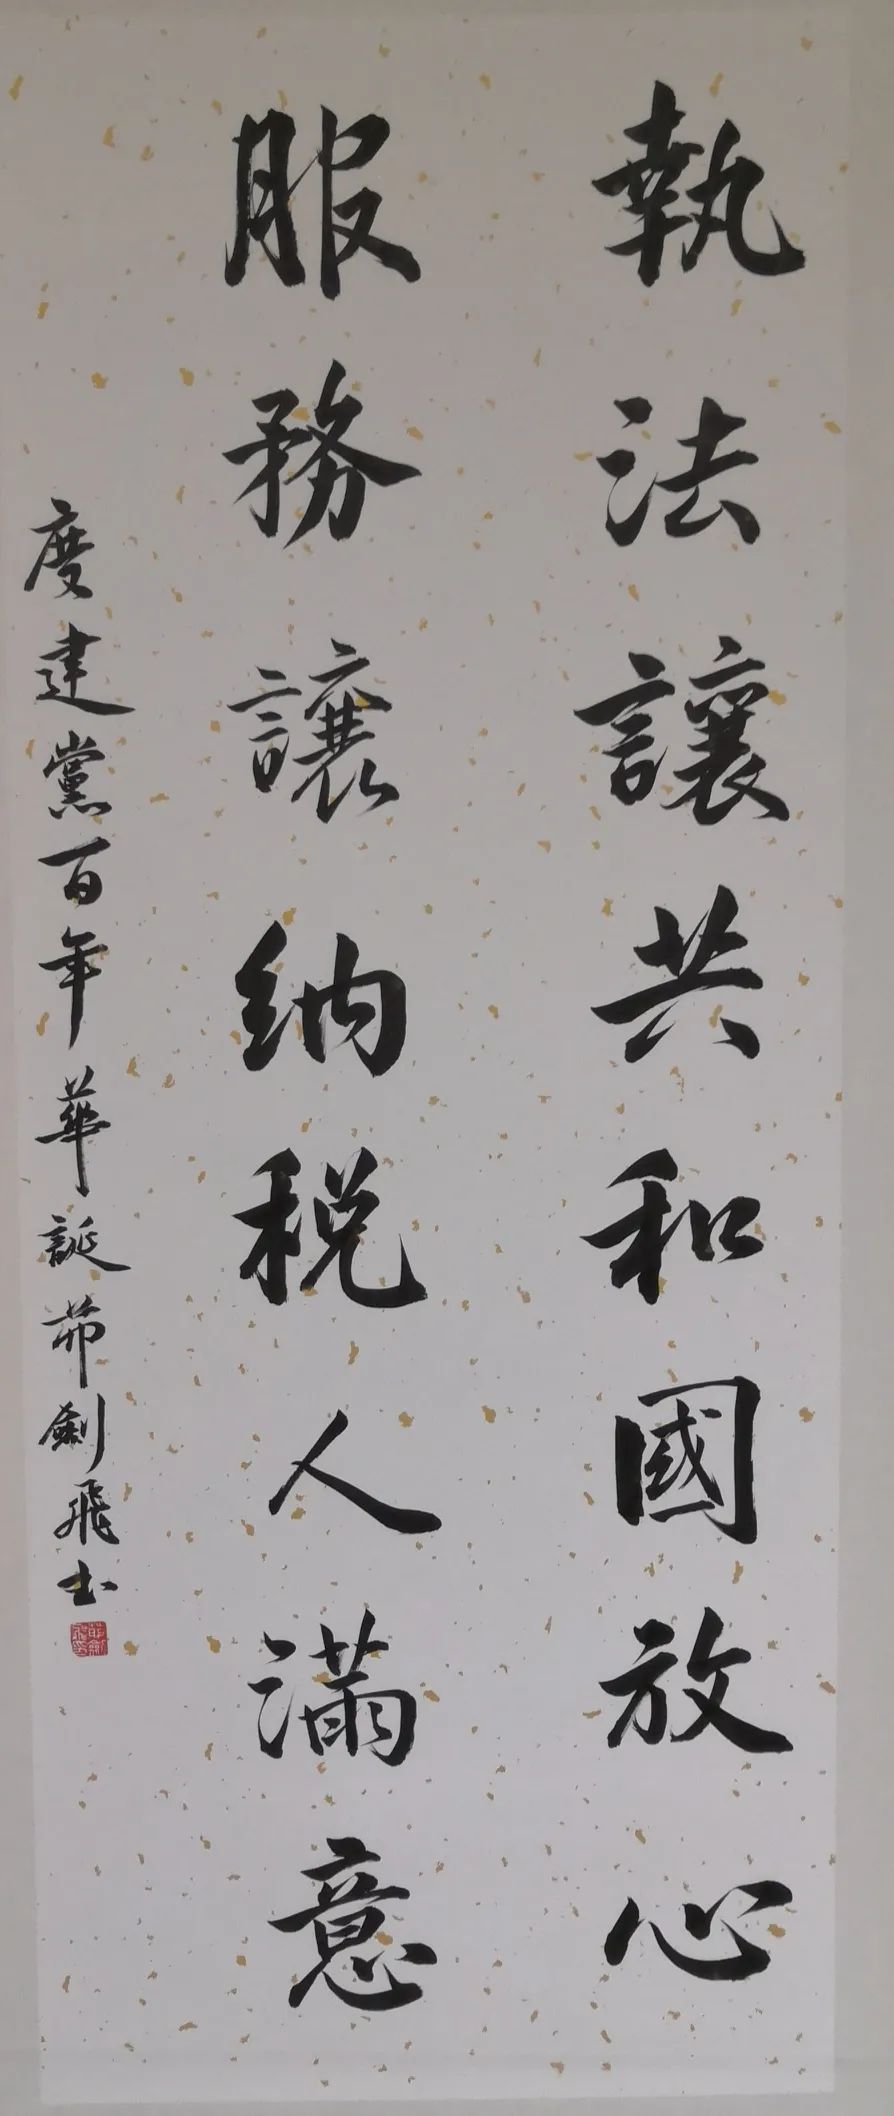 執法讓共和國放心
服務讓納税人滿意
慶建黨百年華誕茆劍飛书